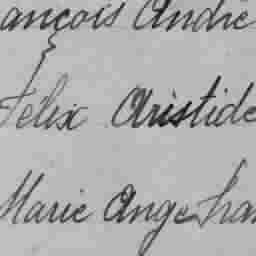 ançois André
Felix Aristide
Marie Ange